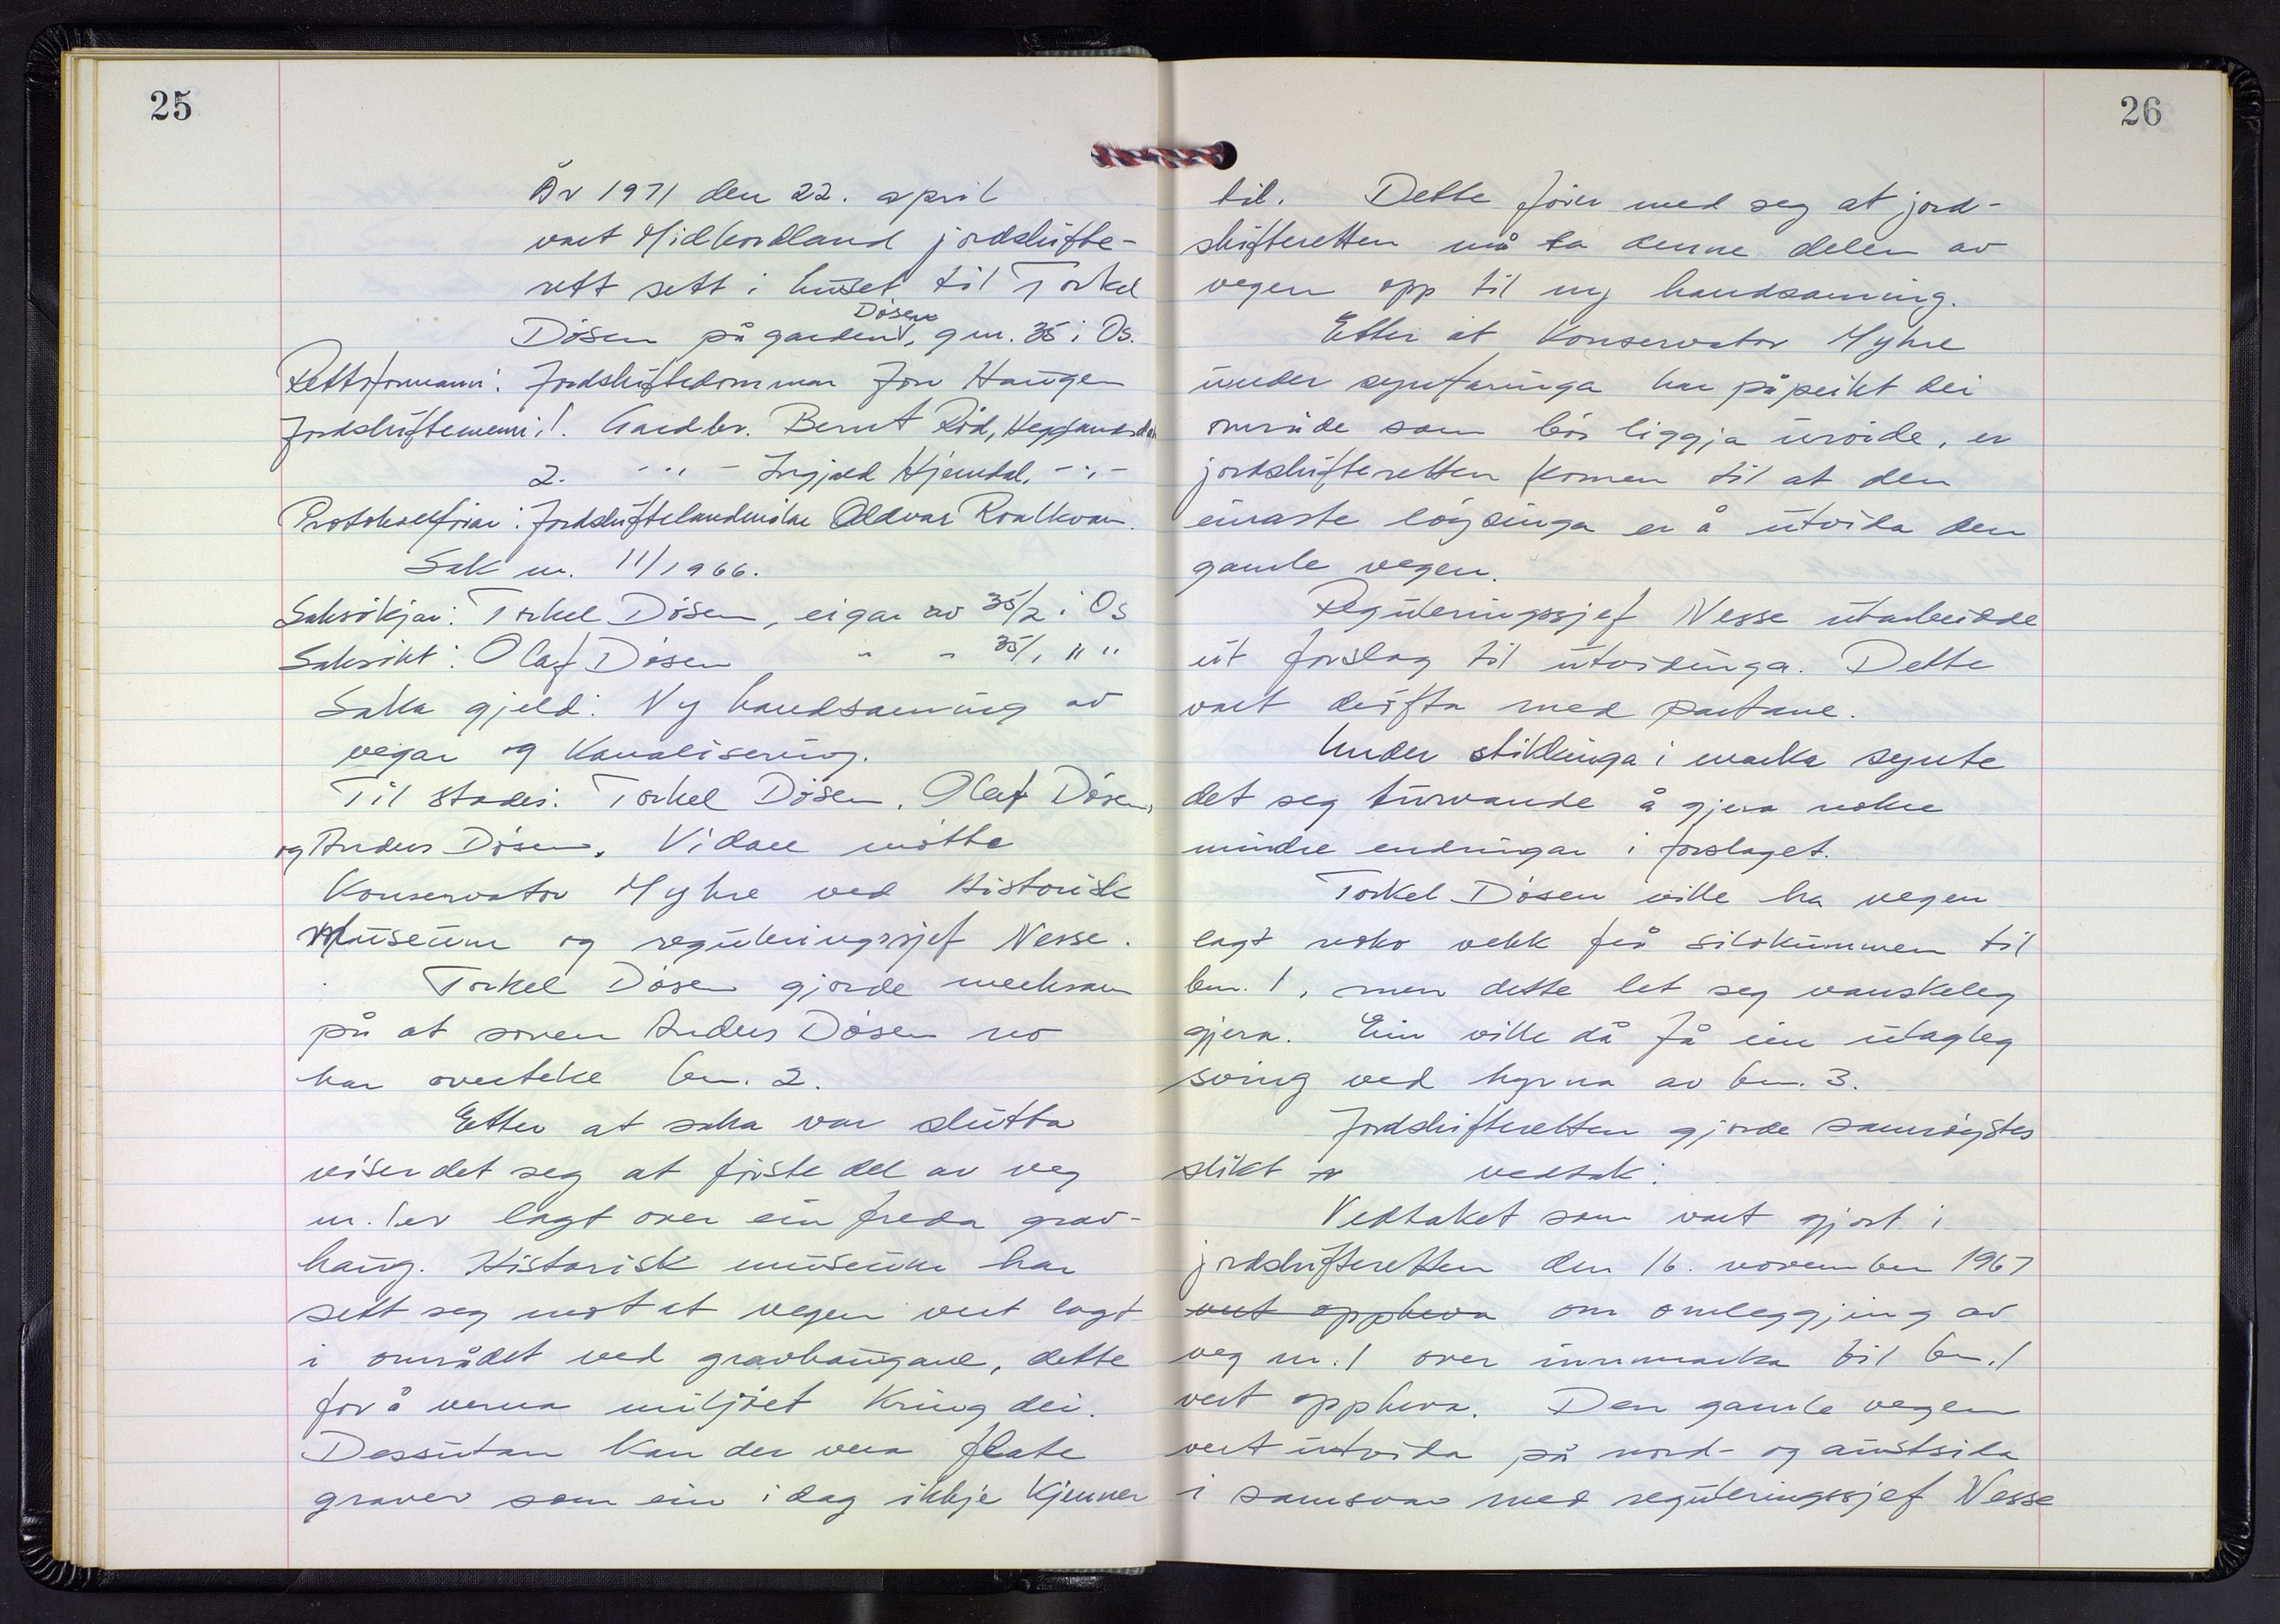 25
År 1971 den 22. april
vart Midhordland jordskifte-
rett sett i huset til Torkel
Døsen
Døsen på garden, gnr. 35 i Os.
Rettsformann: Jordskiftedommar Jon Haugen
Jordskiftemenn: 1. Gardbr. Bernt Rød, Hegglandsdal
2. - " - Ingjald Hjemdal, - " -
Protokollførar: Jordskiftelandmålar Oldvar Roalkvam.
Sak nr. 11/1966.
Saksøkjar: Torkel Døsen, eigar av 35/2 i Os
Saksøkt: Olaf Døsen " " 35/1 " "
Saka gjeld: Ny handsaming av
vegar og kanalisering.
Til stades: Torkel Døsen, Olaf Døsen,
og Anders Døsen. Vidare møtte
Konservator Myhre ved Historisk
Museum og reguleringssjef Nesse.
Torkel Døsen gjorde merksam
på at sonen Anders Døsen no
har overteke bnr. 2.
Etter at saka var slutta
viser det seg at første del av veg
nr. 1 er lagt over ein freda grav-
haug. Historisk museum har
sett seg mot at vegen vert lagt
i området ved gravhaugane, dette
for å verna miljøet kring dei.
Dessutan kan der vera flate
graver som ein i dag ikkje kjenner
26
til. Dette fører med seg at jord-
skifteretten må ta denne delen av
vegen opp til ny handsaming.
Etter at Konservator Myhre
under synfaringa har påpeikt dei
område som bør liggja urøide, er
jordskifteretten komen til at den
einaste løysinga er å utvida den
gamle vegen.
Reguleringssjef Nesse utarbeidde
eit forslag til utvidinga. Dette
vart drøfta med partane.
Under stikkinga i marka synte
det seg turvande å gjera nokre
mindre endringar i forslaget.
Torkel Døsen ville ha vegen
lagt noko vekk frå silokummen til
bnr. 1, men dette let seg vanskeleg
gjera. Ein ville då få ein ulagleg
sving ved hyrna av bnr. 3.
Jordskifteretten gjorde samrøystes
slikt vedtak:
Vedtaket som vart gjort i
jordskifteretten den 16. november 1967
vert oppheva om omleggjing av
veg nr. 1 over innmarka til bnr. 1
vert oppheva. Den gamle vegen
vert utvida på nord- og austsida
i samsvar med reguleringssjef Nesse